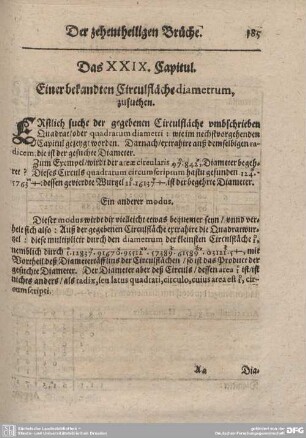 Der zehentheiligen Brüche. 185
Das XXIX. Capitul.
Einer bekandten Circulfläche diametrum,
zusuchen.
ERstlich suche der gegebenen Circulfläche umbschrieben
Quadrat oder quadratum diametri : wie im nechstvorgehenden
Capitul gezeigt worden. Darnach extrahire auß demselbigen ra-
dicem, die ist der gesuchte Diameter.
Zum Exempel wird der areæ circularis Diameter begeh-
ret? Dieses Circuls quadratum circumscriptum hastu gefunden 124.
1763 dessen gevierdte Wurzel ist der begehrte Diameter.
Ein anderer modus.
Dieser modus wird dir vielleicht etwas bequemer seyn / unnd ver-
helt sich also : Auß der gegebenen Circulfläche extrahire die Quadratwur-
tzel : diese multiplicir durch den diametrum der kleinsten Circulfläche
nemblich durch mit
Vortheil deß Diameters auß der Circulflächen / so ist das Product der
gesuchte Diameter. Der Diameter aber deß Circuls / dessen area ist / ist
nichts anders / als radix, seu latus quadrati, circulo, cuius area est cir-
cumscripti.
Aa Dia-